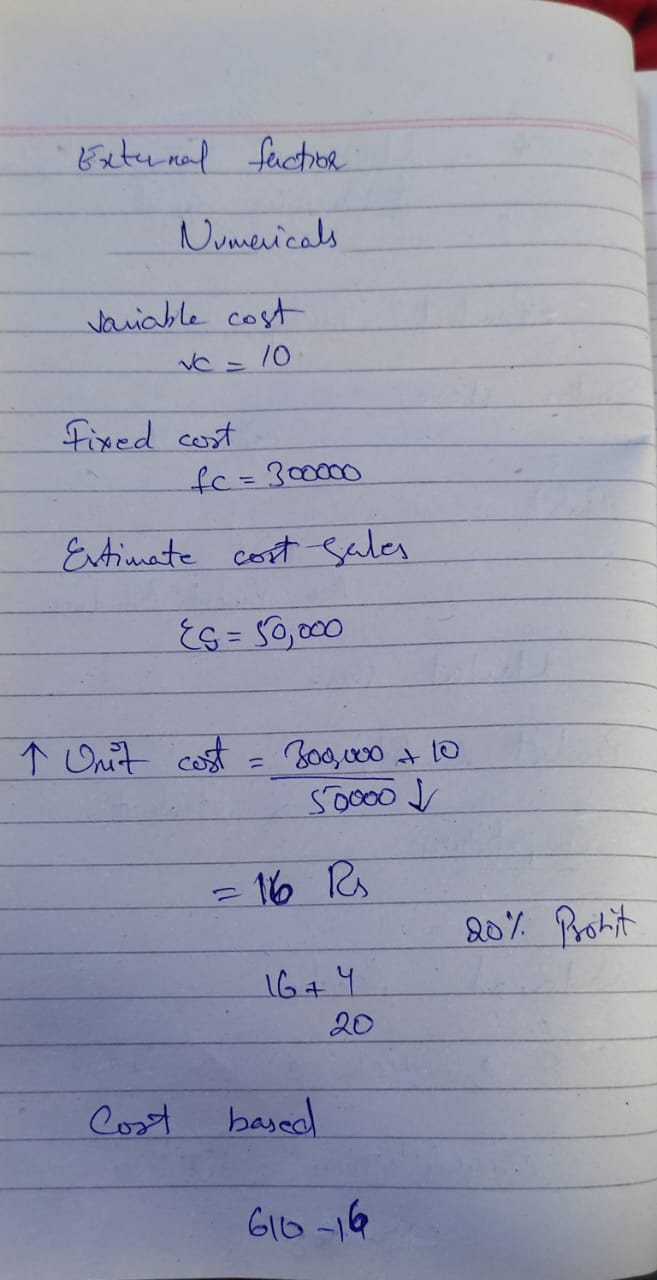 External factor
Numericals
Variable cost
VC = 10
Fixed cost
fc = 300000
Estimate cost sales
ES = 50,000
↑ Unit cost = 300,000 + 10
50000 ↓
= 16 Rs
20% Profit
16 + 4
20
Cost based
610 - 16